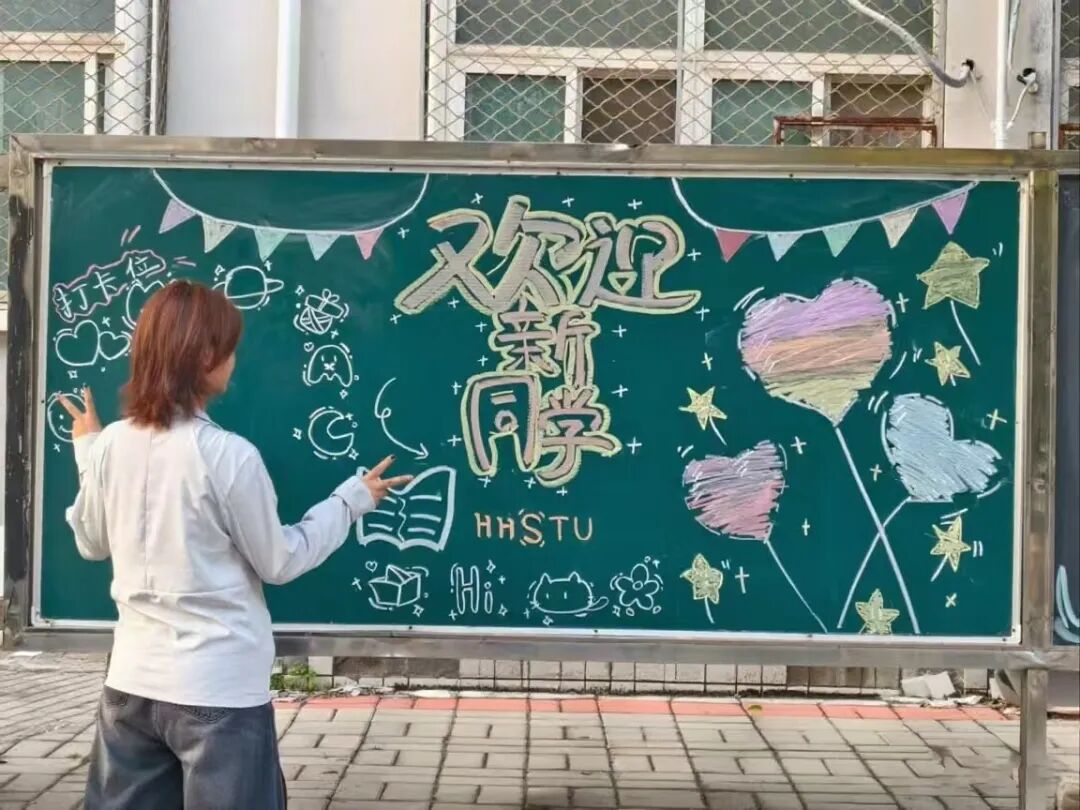 打卡位
欢迎
新
同学
HHSTU
Hi